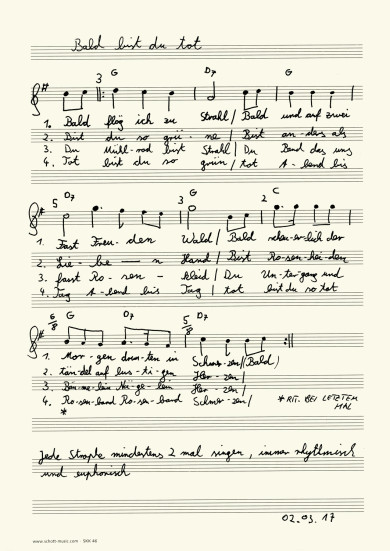 Bald bist du tot
3 G D7 G
1. Bald flög ich zu Strahl / Bald und auf zwei
2. Bist du so grü - ne / Bist an-ders als
3. Du Mühl-rad bist Strahl / Du Band des uns
4. Tot bist du so grün / tot A-bend bis
5 D7 3 G 2 C
1. Fast Freu-den Wald / Bald der
2. Lie-be — n Hand / Bist Ro-sen-hei-den
3. fasst Ro-sen - kleid / Du Un-ter-gang und
4. Tag A-bend bis Tag / tot bist du so tot
6/8 G D7 5/8 D7
1. Mor-gen drau-ten in Schmer-zen (Bald)
2. tän-del auf lus-ti-gen Her-zen /
3. Her-zen /
4. Ro-sen-band Ro-sen-band Schmer-zen / * RIT. BEI LETZTEM
* MAL
Jede Strophe mindestens 2 mal singen, immer rhythmisch
und euphonisch
02.03.17
www.schott-music.com · SKK 40